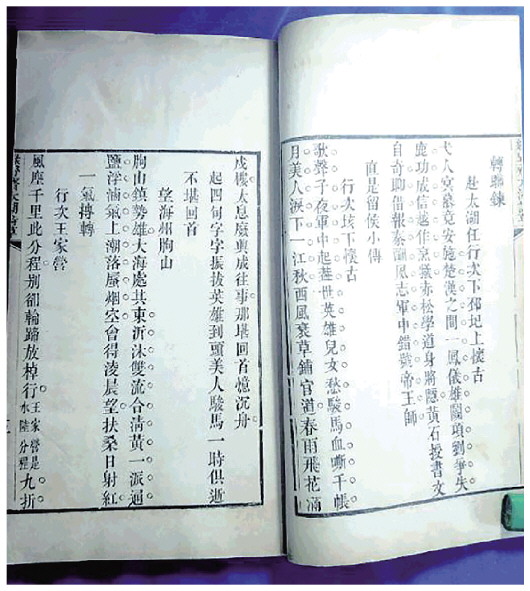 轉聯鍊
赴太湖任行次下邳圯上懷古
弋人冥慕竟安施楚漢之間一鳳儀雄鬬項劉爭失
鹿功成信越作烹羆赤松學道身將隱黃石授書文
自奇助借報秦酬夙志軍中錯與帝王師
直是留侯小傳
行次垓下懷古
歌聲子夜軍中起蓋世英雄兒女愁駿馬血嘶千帳
月美人淚下一江秋西風衰草鋪官道春雨飛花滿
戍樓太息廢興成往事那堪回首憶沉舟
起四句字字振拔英雄到頭美人駿馬一時俱逝
不堪回首
望海州朐山
朐山鎮勢雄大海處其東沂沭雙流合淸黃一派通
鹽浮滷氣上潮落蜃烟空曾得淩晨望扶桑日射紅
一氣摶轉
行次王家營
風塵千里此分程別卻輪蹄放棹行王家營是水陸分程九折